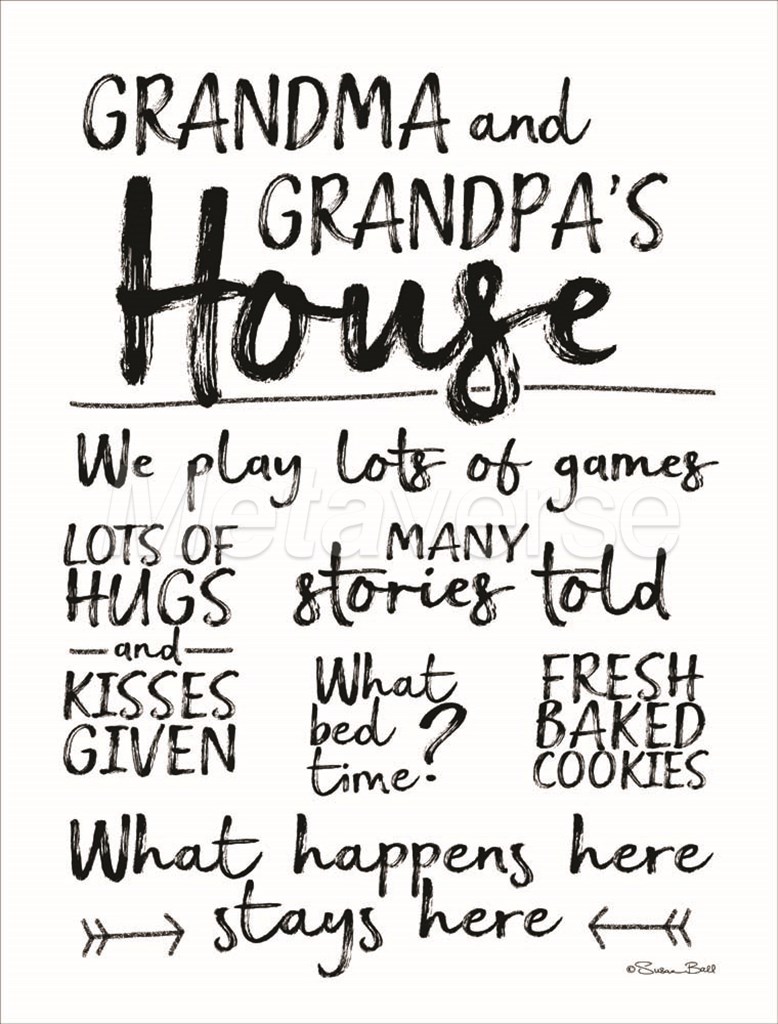 GRANDMA and
GRANDPA'S
House
We play lots of games
Metaverse
LOTS OF
HUGS
and
KISSES
GIVEN
MANY
stories told
What
bed
time?
FRESH
BAKED
COOKIES
What happens here
stays here
©Susan Ball